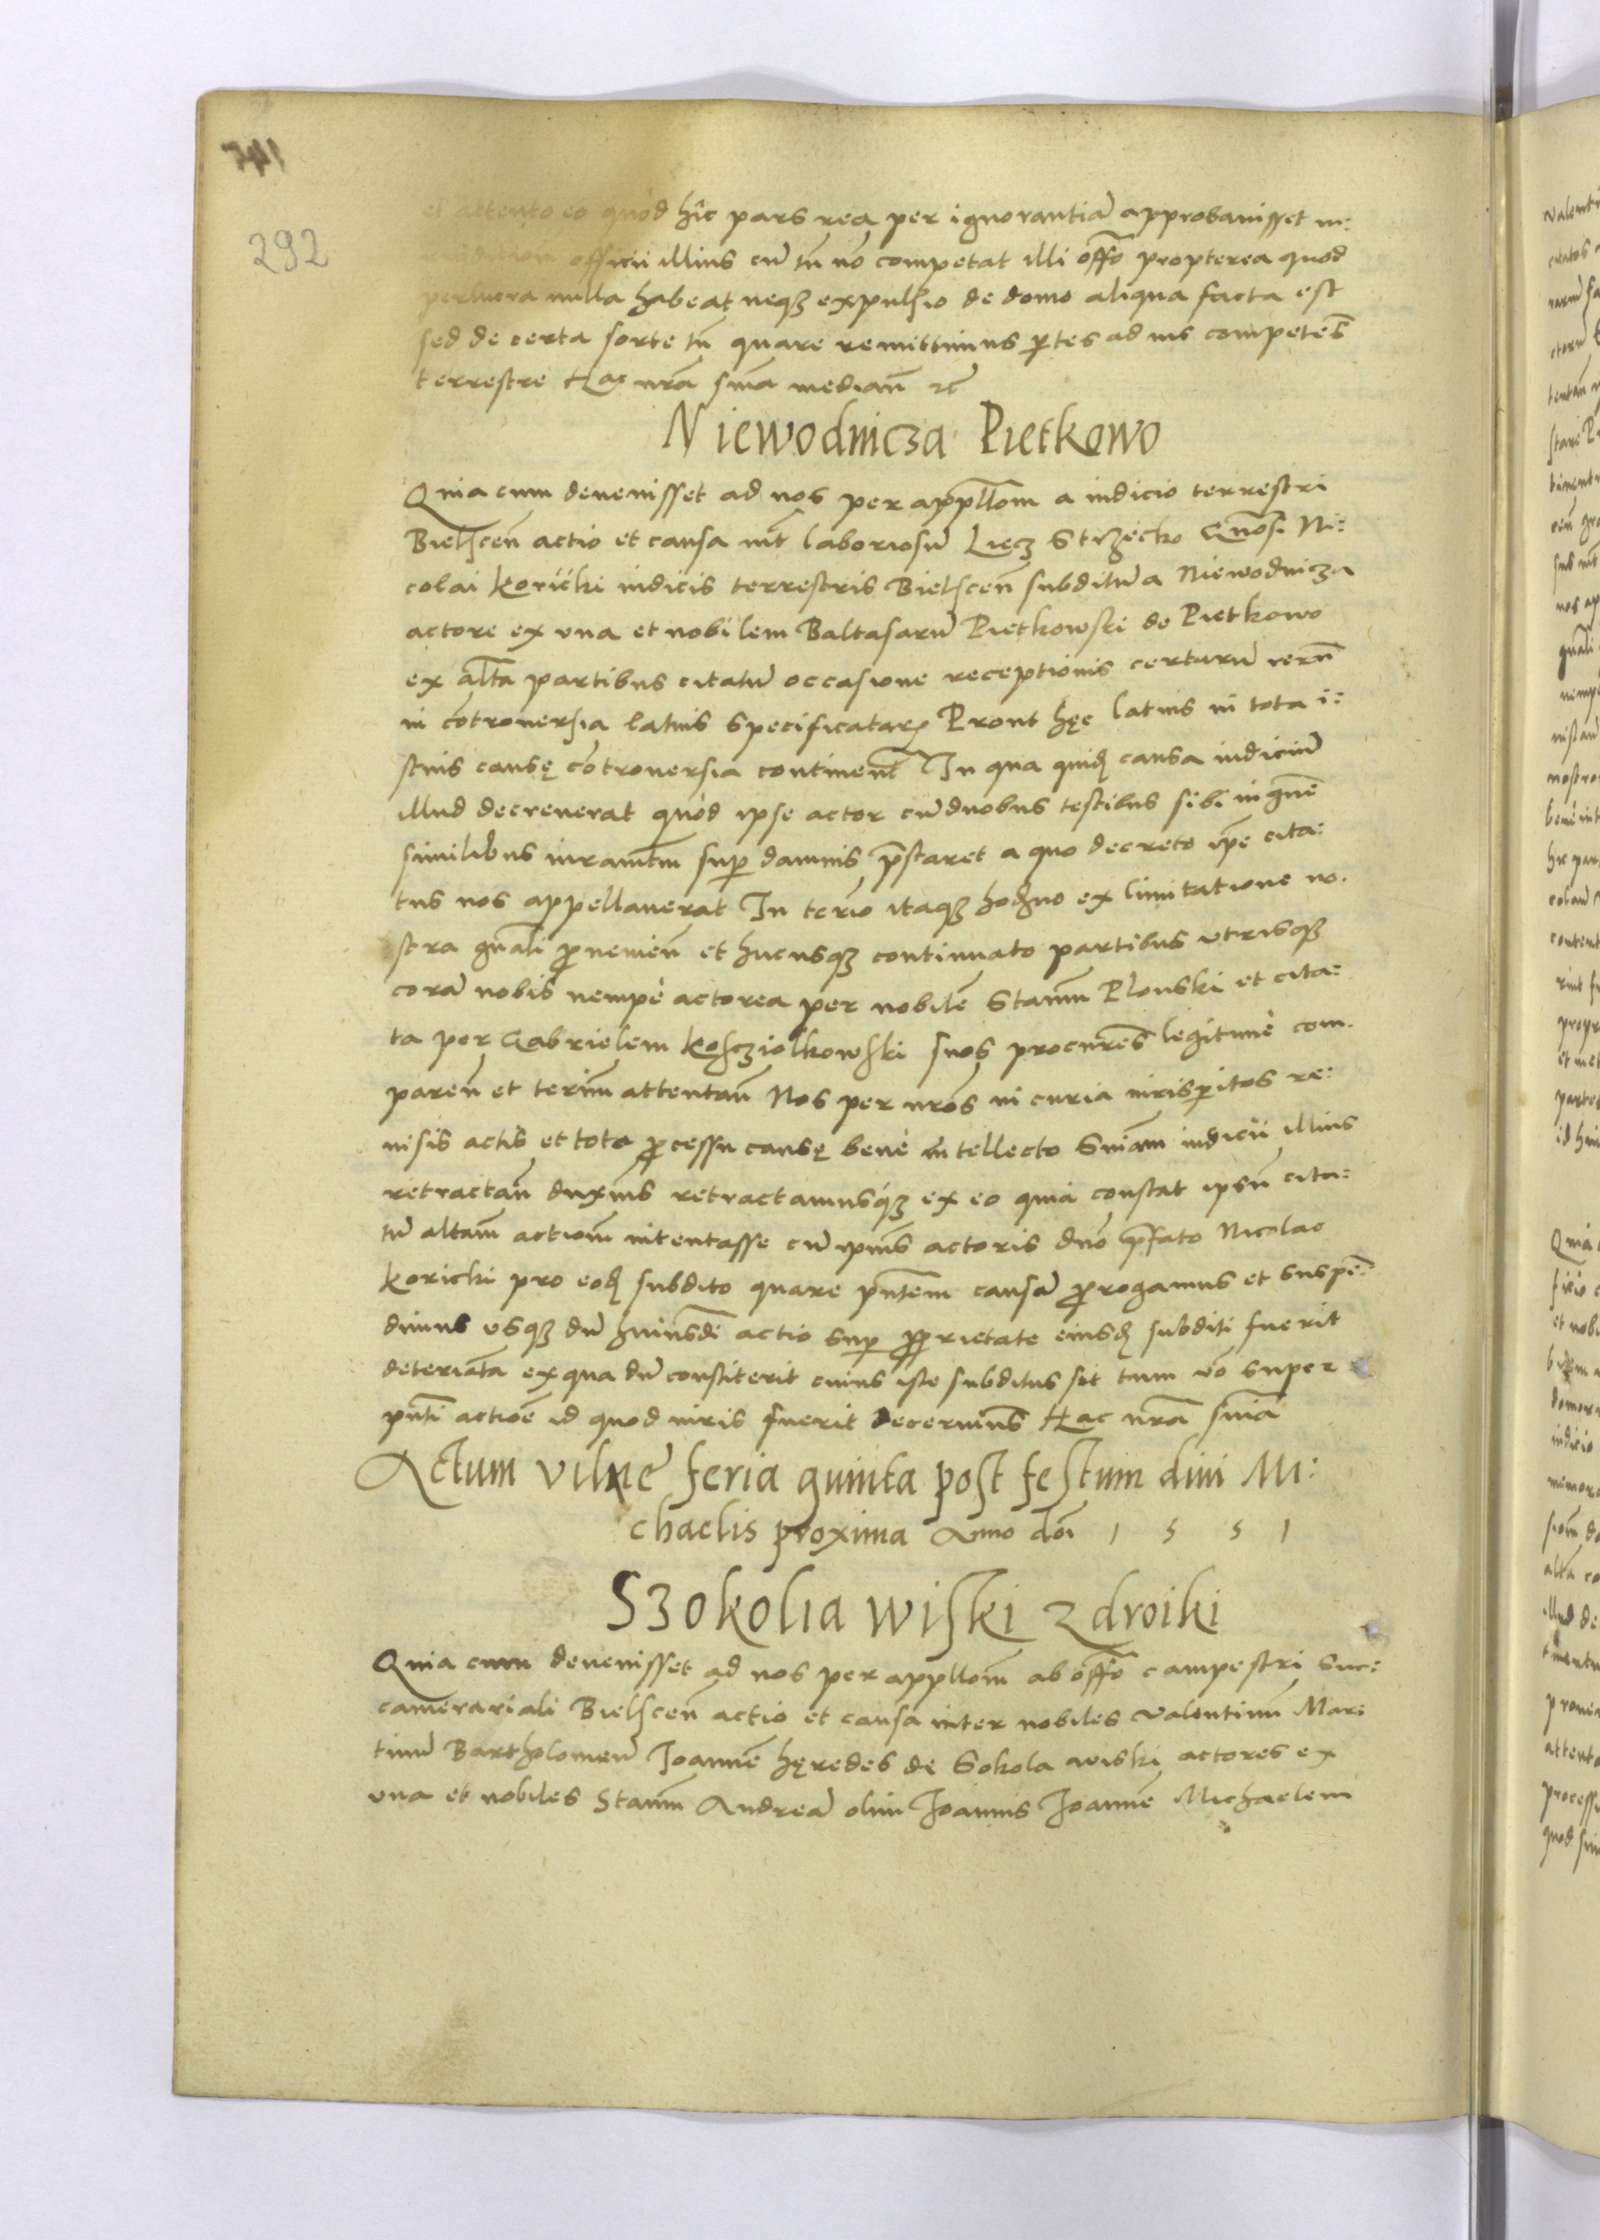 292
et attento eo quòd hîc pars rea per ignorantiã approbauisset iu:
officii illius cũ tñ nõ competat illi offõ propterea quod
perlucra nulla habeat neqз expulsio de domo aliqua facta est
sed de certa sorte tñ quare remittimus ptes ad ius competẽs
terrestre Hac nrã sniã median̄ ec̃
Niewodnicza Pietkowo
Quia cum deuenisset ad nos per appllom̃ a iudicio terrestri
Bielscen̄ actio et causa int̃ laboriosũ Liecz Strzecko Gñosi Ni:
colai Koricki iudicis terrestris Bielscen̄ subditum a Niewodnicza
actore ex vna et nobilem Baltasarũ Pietkowski de Pietkowo
ex altã partibus citatũ occasione receptionis certarũ rerũ
in cõtrouersia latius specificatarꝝ Prout hęc latius in tota i:
stius causę cõtrouersia continent̃ In qua quidꝫ causa iudiciũ
illud decreuerat quòd ipse actor cũ duobus testibus sibi in gñe
similibus iuramtm̃ sup̱ damnis p̃staret a quo decreto ip̃e cita:
tus nos appellauerat In term̃o itaqз hodiẽno ex limitatione no:
stra gñali ꝓuenien̄ et hucusqз continuato partibus vtrisqз
corã nobis nempè actorea per nobilẽ Stanm̃ Plonski et cita:
ta per Gabrielem Kosziolkowski suos procurẽs legitimè com:
paren̄ et termm̃ attentan̄ Nos per nrõs in curia iurisp̱itos re:
uisis actis et toto ꝓcessu causę benè intellecto Sniam̃ iudicii illius
retractan̄ duxim̃s retractamusq́з ex eo quià constat ipsũ cita:
tũ altam̃ actiom̃ intentasse cũ ipiũs actoris dnõ p̃fato Nicolao
Koricki pro eodꝫ subdito quare pñtem causã ꝓrogamus et suspẽ:
dimus vsqз dũ huiusdi̇ actio sup̱ ꝓprietate eiusdꝫ subditi fuerit
determ̃ata ex qua dũ constiterit cuius iste subditus sit tum võ super
pñti actiõe id quod iuris fuerit decernim̃s Hac nrã sniã
Actum Vilnę feria quinta post festum diui Mi:
chaelis proxima Anno dõi 1 5 5 1
Szokolia wiski Zdroiki
Quia cum deuenisset ad nos per appllom̃ ab offõ campestri suc:
camerariali Bielscen̄ actio et causa inter nobiles Valentinũ Mar:
tinũ Bartholomeũ Joannẽ hęredes de Sokola wiski actores ex
vna et nobiles Stanm̃ Andreã olim Joannis Joannẽ Michaelem